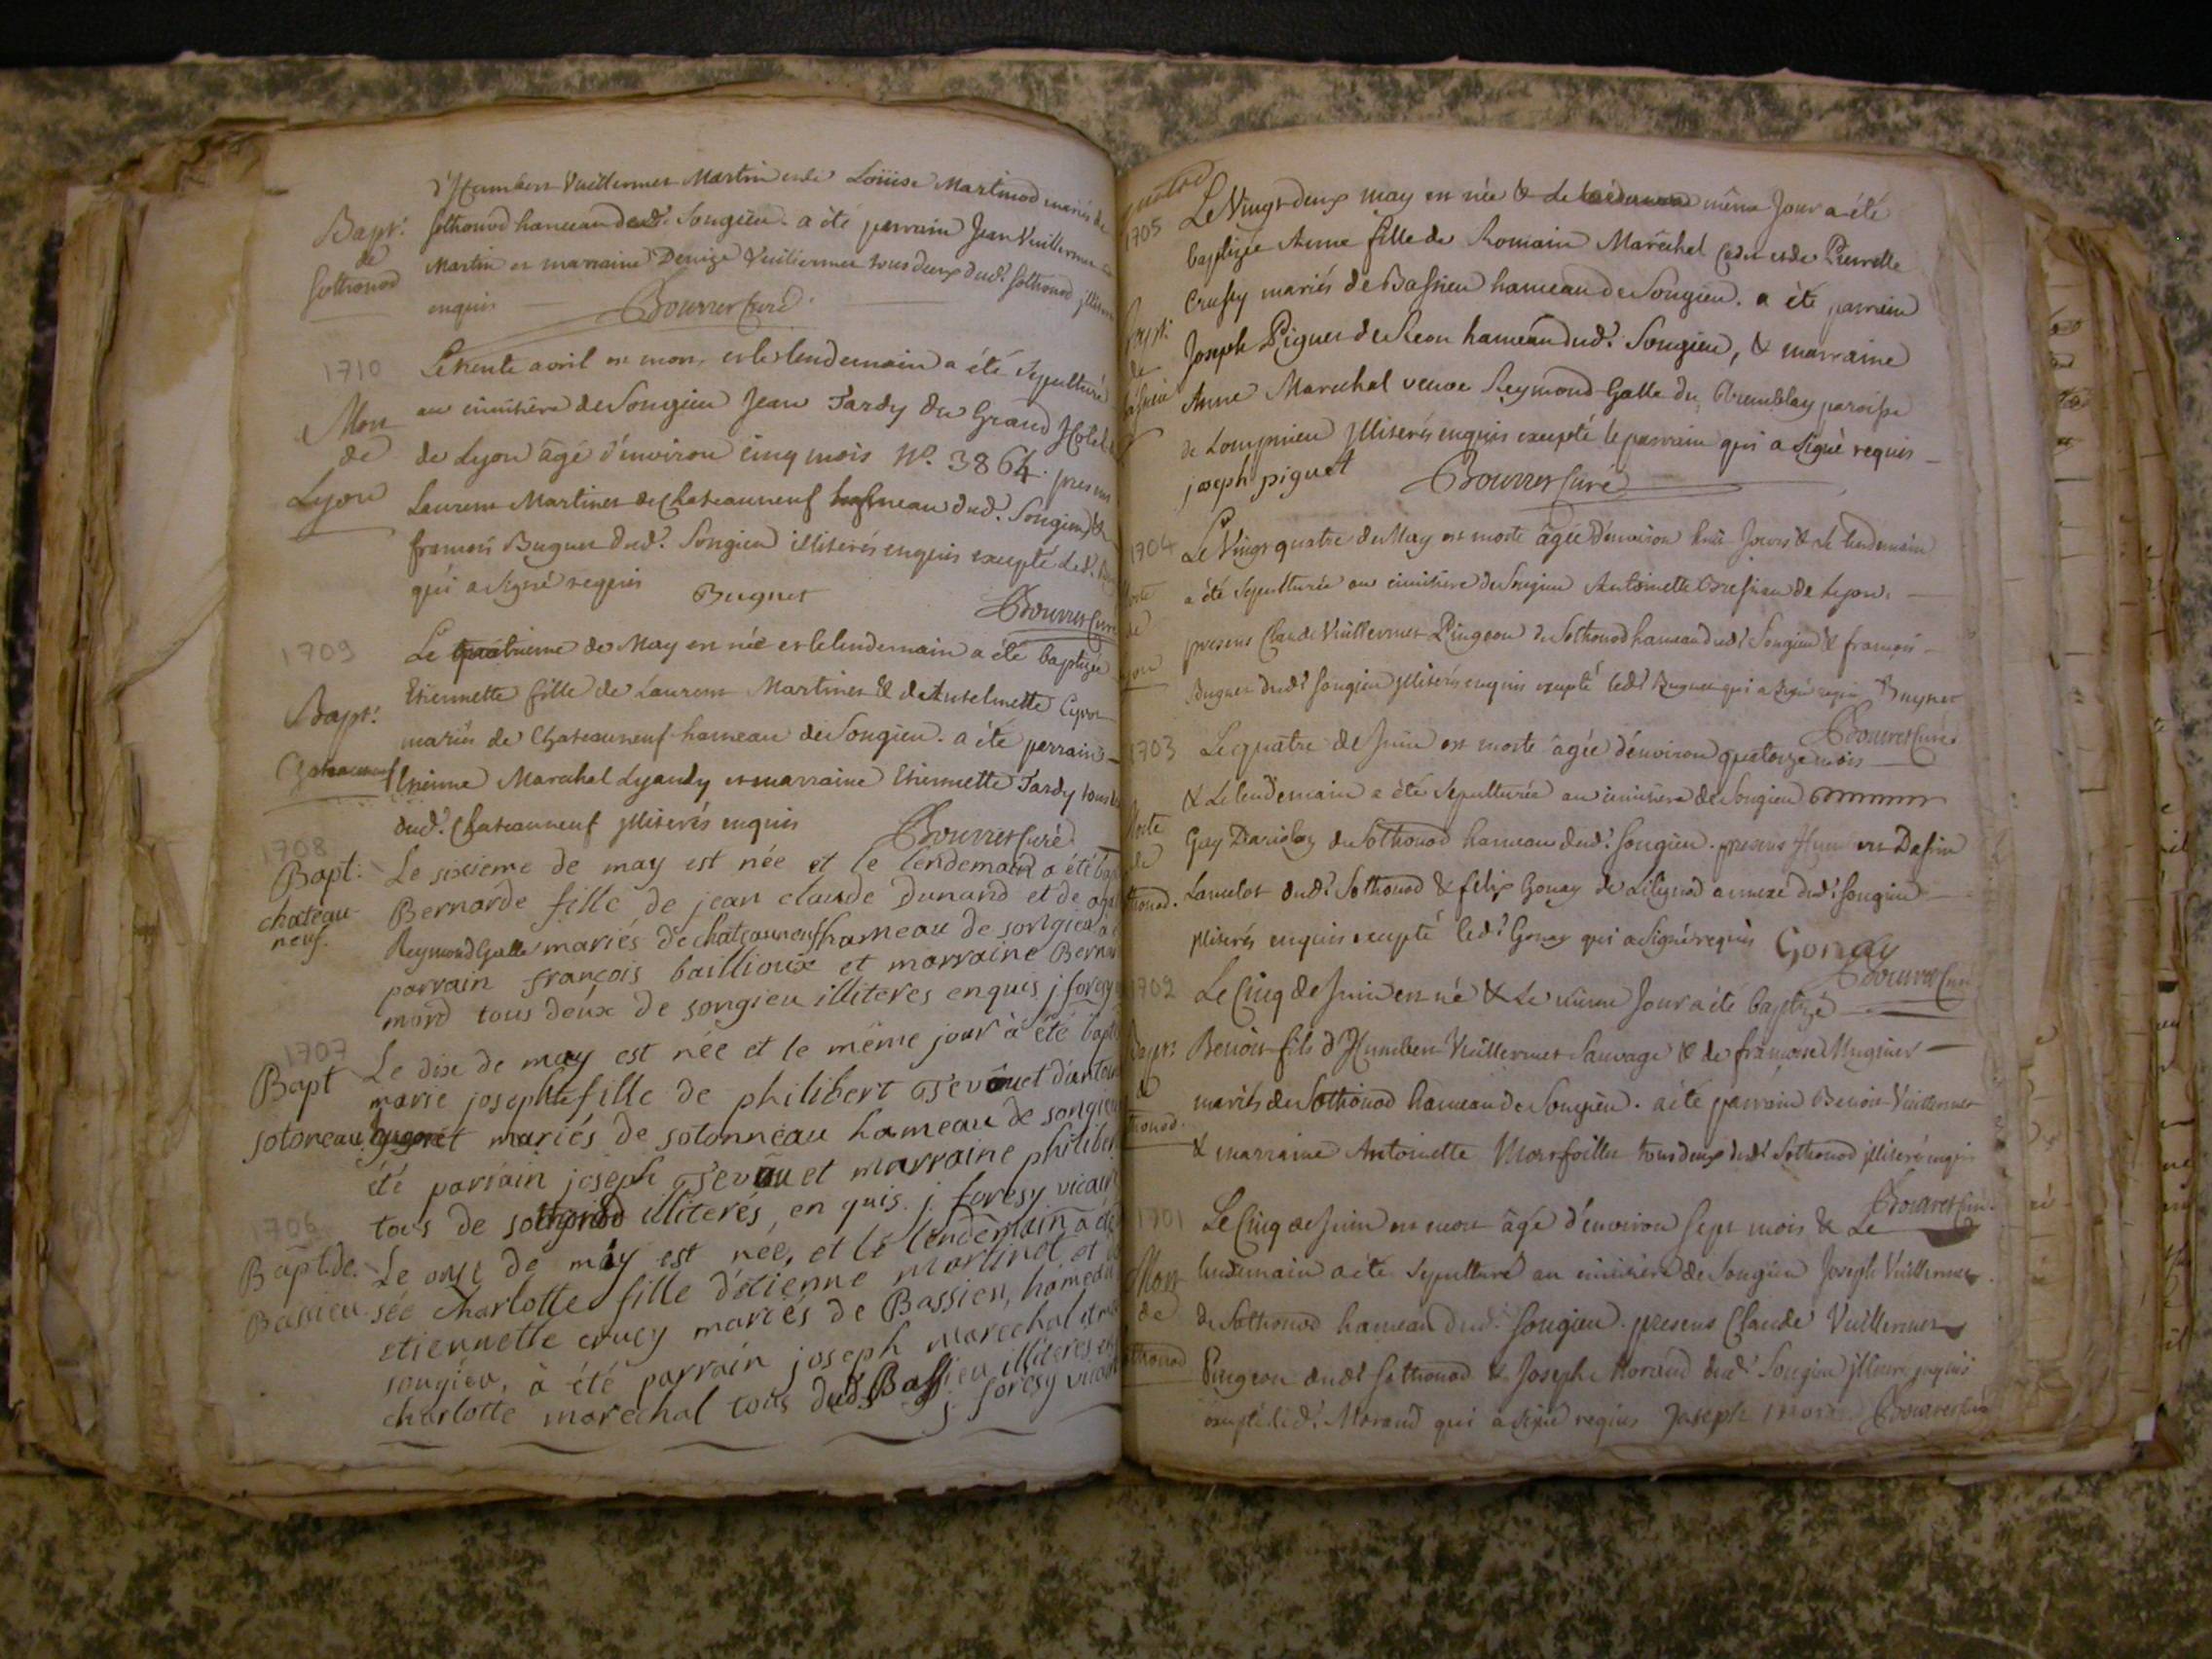 d'Humbert Vuillermet Martin et de Loüise Martinod mariés de
Bapt.
de
Sothonod
Sothonod hameau dud. Songieu. a été parrain Jean Vuillermet
Martin et marraine Denize Vuillermet tous deux dud. Sothonod
enquis Bourret Curé
1710
Mort
de
Lyon
Le trente avril est mort, et le lendemain a été sepulturé
au cimitière de Songieu Jean Tardy du Grand Hotel
de Lyon âgé d'environ cinq mois N°. 3864. presens
Laurent Martinet de Chateauneuf hameau dud. Songieu &
francois Buguet dud. Songieu illiterés enquis excepté led.
qui a signé requis Buguet
Bourret Curé
1709
Bapt.
Chateauneuf
Le quatrieme de May est née et le lendemain a été baptizée
Etiennette fille de Laurent Martinet & de Antelmette
mariés de Chateauneuf hameau de Songieu. a été parrain
Etienne Marechal Lyandy et marraine Etiennette Tardy tous
dud. Chateauneuf illiterés enquis Bourret Curé
1708
Bapt:
chateau-
neuf.
Le sixieme de may est née et le lendemain a été
Bernarde fille de jean claude Dunand et de
Reymond Galle mariés de chateauneuf hameau de songieu a
parrain françois baillioux et marraine
mord tous deux de songieu illiteres enquis j. foresy
1707
Bapt
sotoneau
Le dix de may est née et le même jour à été
marie josephte fille de philibert Tevênet d'
mariés de sotonneau hameau de songieu
été parrain joseph Tevênet marraine
tous de sothonod illiterés, en quis. j. foresy vicaire
1706
Bapt. de.
Bassieu
Le onze de may est née, et le lendemain a été
sée charlotte fille d'étienne martinet et
etiennette crucy mariés de Bassieu, hameau
songieu, à été parrain joseph marechal et
charlotte marechal tous dud. Bassieu illiteres
j. foresy vicaire
1705
Bapt.
de
Le Vingt deux may est née & le même Jour a été
baptizée Anne fille de Romain Maréchal Cadet et de Pierrette
Crussy mariés de Bassieu hameau de Songieu. a été parrain
Joseph Piguet de hameau dud. Songieu, & marraine
Anne Marechal veuve Reymond-Galle du paroisse
de Lompnieu illiterés enquis excepté le parrain qui a signé requis
joseph piguet Bourret Curé
1704
de
Le Vingt quatre de May est morte âgée d'environ huit Jours & le lendemain
a été sepulturée au cimitière de Songieu Antoinette de Lyon.
presens Claude Vuillermet Pingeon de Sothonod hameau dud. Songieu & francois
Buguet dud. Songieu illiterés enquis excepté led. Buguet qui a signé requis Buguet
Bourret Curé
1703
de
Le quatre de Juin est morte âgée d'environ quatorze mois
& le lendemain a été sepulturée au cimitière de Songieu
Guy de Sothonod hameau dud. Songieu. presens
Lancelot dud. Sothonod & felix Gonay de annexe dud. Songieu
illiterés enquis excepté led. Gonay qui a signé requis Gonay
Bourret Curé
1702
Bapt.
de
Le Cinq de Juin est né & le même Jour a été baptizé
Benoit fils d'Humbert Vuillermet Sauvage & de francoise Mugnier
mariés de Sothonod hameau de Songieu. a été parrain Benoit Vuillermet
& marraine Antoinette tous deux dud. Sothonod illiterés enquis
Bourret Curé
1701
Mort
de
Sothonod
Le Cinq de Juin est mort âgé d'environ Sept mois & Le
lendemain a été sepulturé au cimitière de Songieu Joseph Vuillermet
de Sothonod hameau dud. Songieu. presens Claude Vuillermet
Pingeon dud. Sothonod & Joseph Morand dud. Songieu illiterés enquis
excepté led. Morand qui a signé requis Joseph Morand Bourret Curé